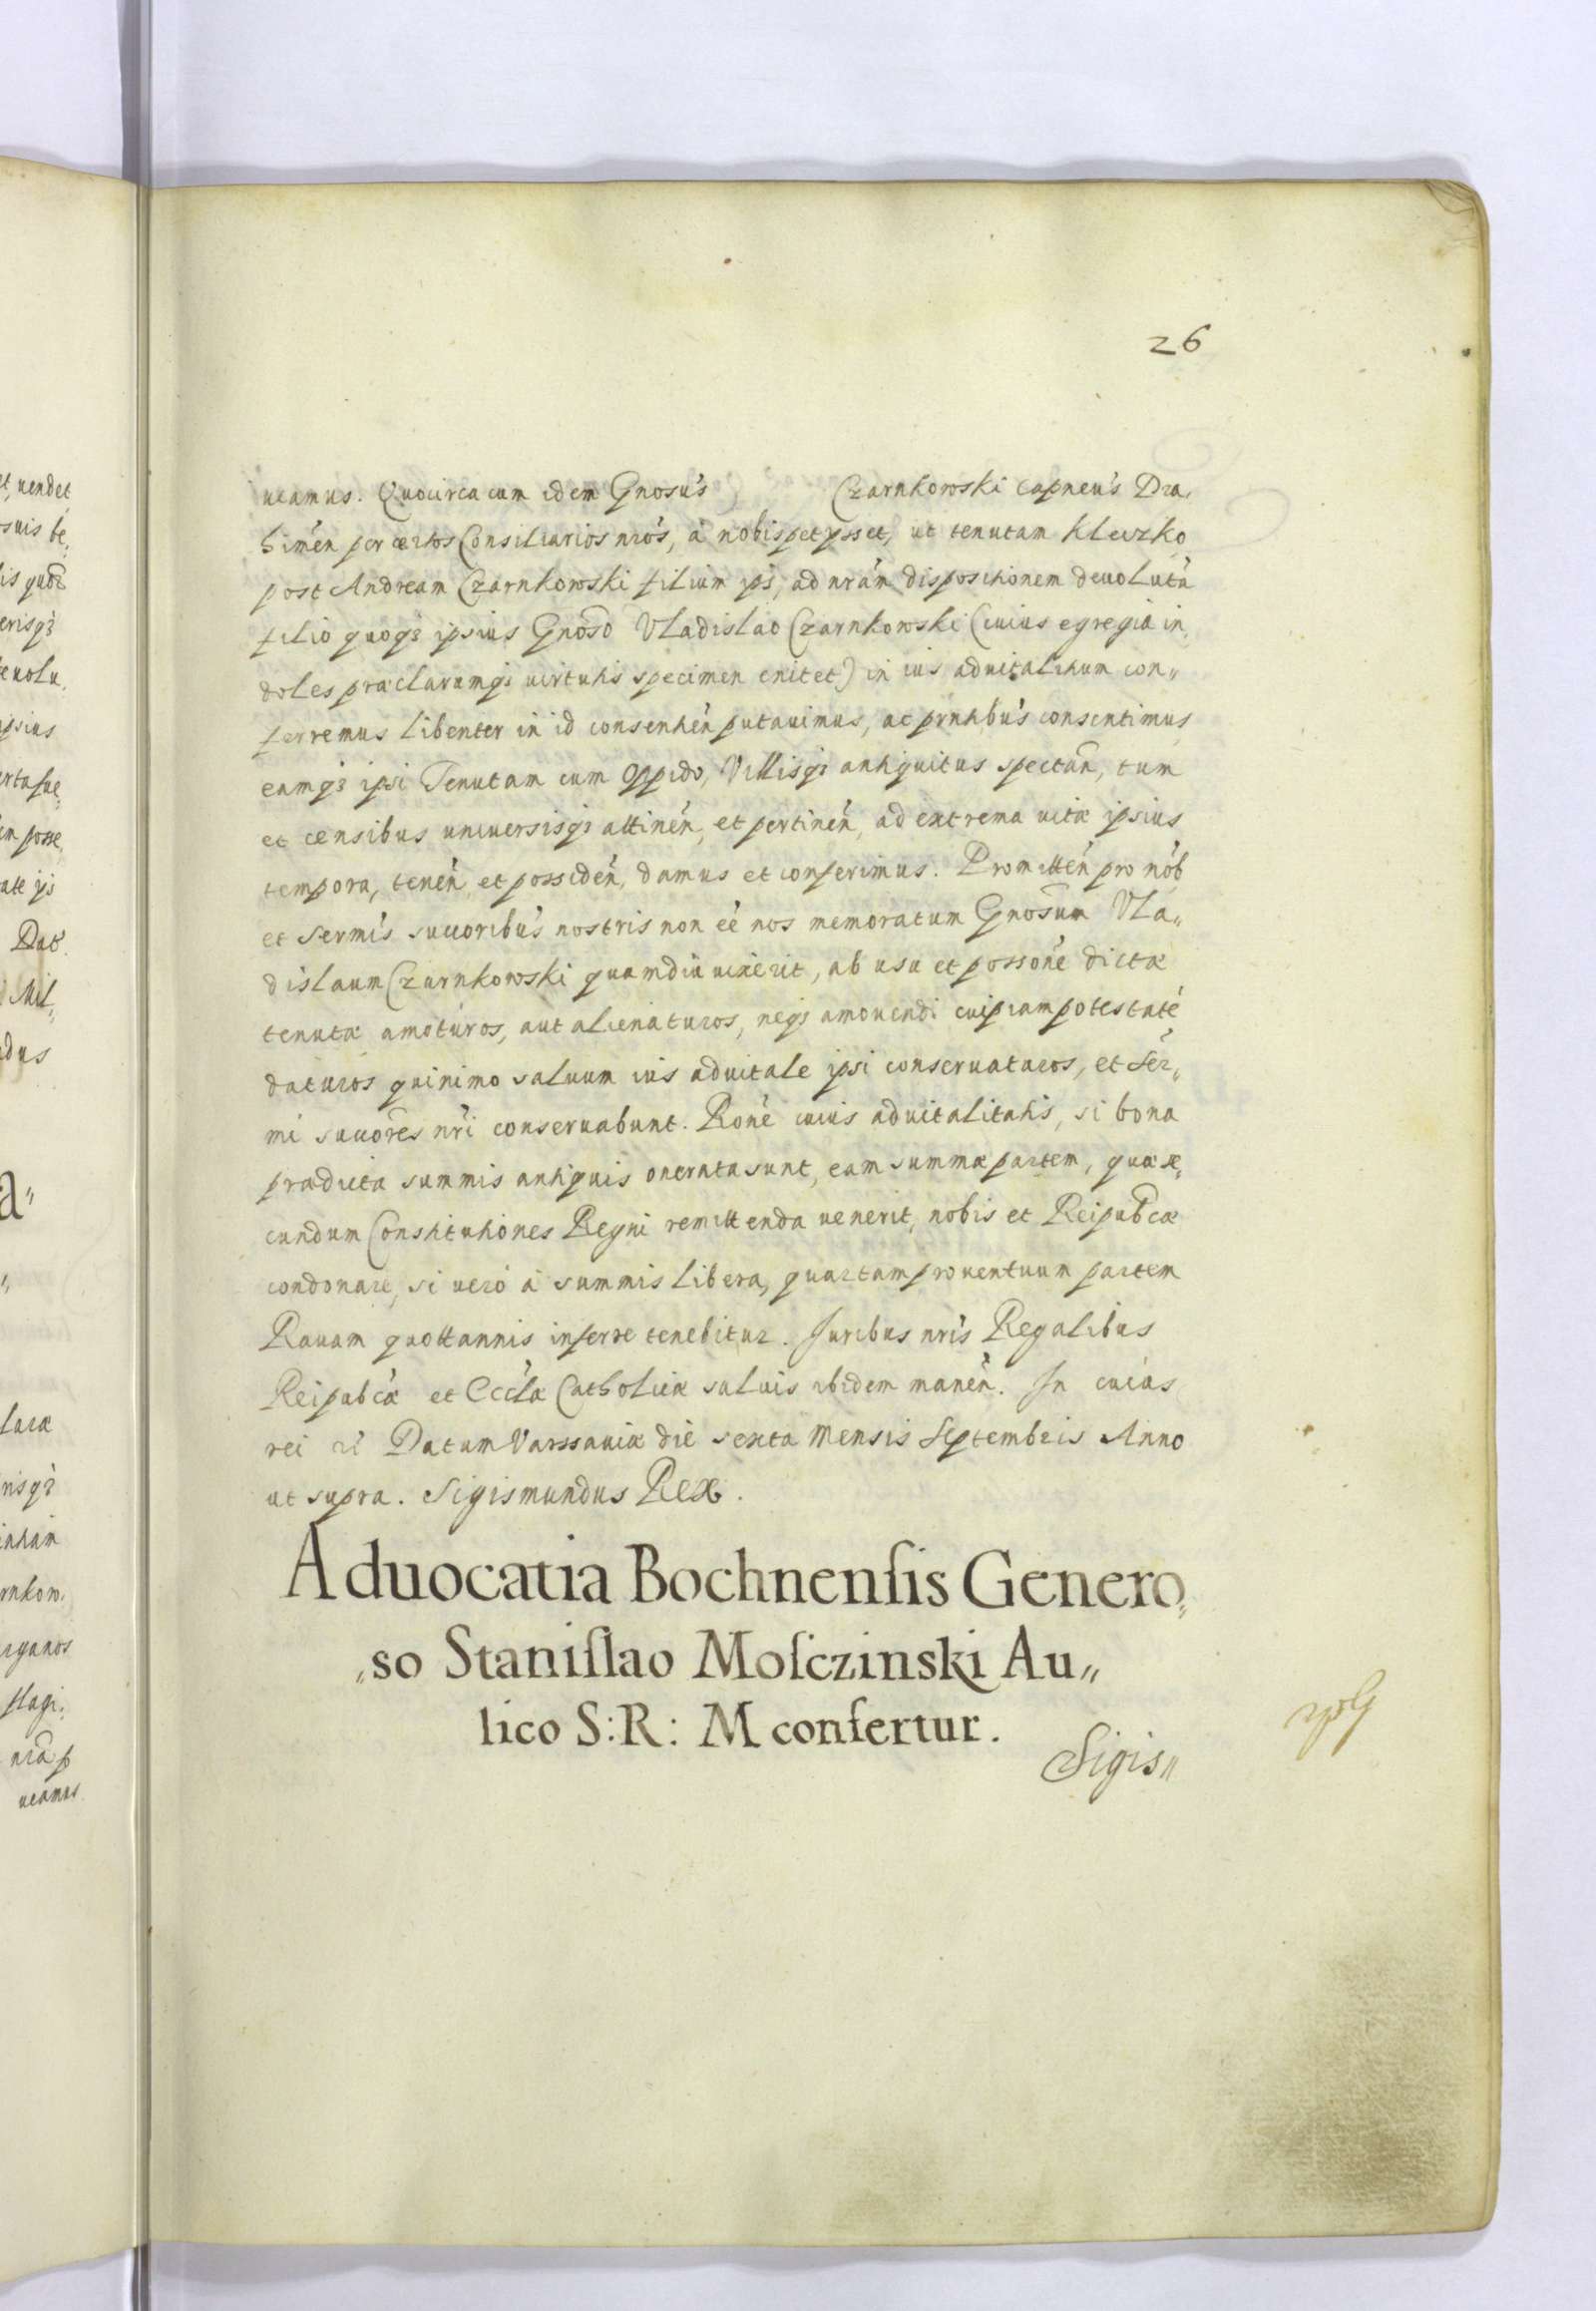 26
ueamus. Quocirca cum idem Gnosus Czarnkowski Capneus Dra,
himen per certos Consiliarios nros, à nobis petysset, ut tenutam Kleczko
post Andream Czarnkowski filium ips, ad nram dispositionem deuoluta
filio quoqз ipsius Gnoso Vladislao Czarnkowski (cuius egregia in,
doles præclarumqз uirtutis specimen enitet) in ius aduitalitium con„
ferremus libenter in id consentien putauimus, ac prntibus consentimus,
eamqз ipsi Tenutam cum Oppido, Villisqз antiquitus spectan, tum
et censibus uniuersisqз attinen, et pertinen, ad extrema uitæ ipsius
tempora, tenen, et possiden, damus et conferimus. Promitten pro nob
et Sermis succoribus nostris non eé nos memoratum Gnosum Vla„
dislaum Czarnkowski quamdiu uixerit, ab usu et possone dictæ
tenutæ amoturos, aut alienaturos, neqз amouendi cuipiam potestaté
daturos quinimo saluum ius aduitale ipsi conseruaturos, et Ser„
mi succores nri conseruabunt. Rone cuius aduitalitatis, si bona
prædicta summis antiquis onerata sunt, eam summæ partem, quæ se,
cundum Constitutiones Regni remittenda uenerit, nobis et Reipubcæ
condonare, si uero à summis libera, quartam prouentuum partem
Rauam quottannis inferre tenebitur. Juribus nris Regalibus
Reipubcæ et Eccla Catholicæ saluis ibidem manen. In cuius
rei Datum Varssauiæ die sexta Mensis Septembris Anno
ut supra. Sigismundus Rex.
Aduocatia Bochnensis Genero„
„so Stanislao Mosczinski Au„
lico S: R: M confertur.
Sigis„
t, uendet
suis be,
is quoz
erisqз
euolu,
ipsius
erta sue,
m posse,
ate ips
Dat.
Mil,
dus
a„
luræ
risqз
rnkow,
rganos
stagi,
ueamus